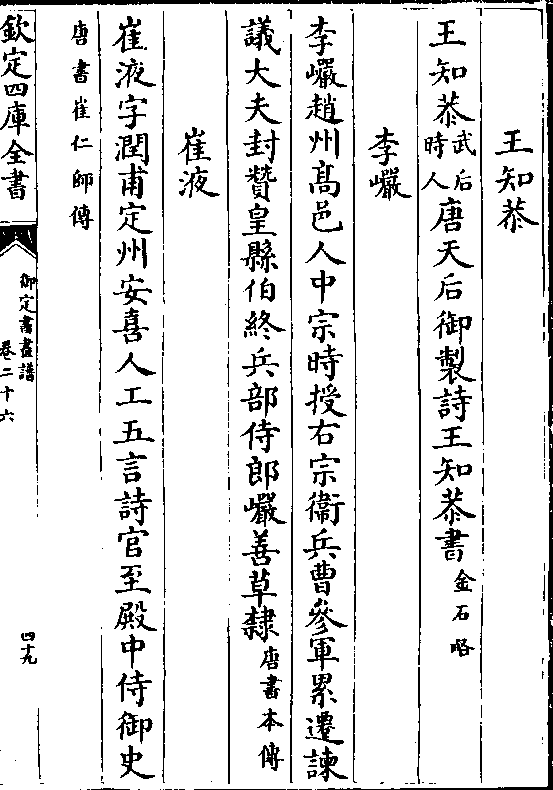 王知㳟
王知㳟武后時人唐天后御製詩王知㳟書金石略
李巗
李巗趙州髙邑人中宗時授右宗衞兵曹參軍累遷諫
議大夫封贊皇縣伯終兵部侍郎巗善草隸唐書本傳
崔液
崔液字潤甫定州安喜人工五言詩官至殿中侍御史
唐書崔仁師傳
欽定四庫全書
御定書畫譜
卷二十六
四十九